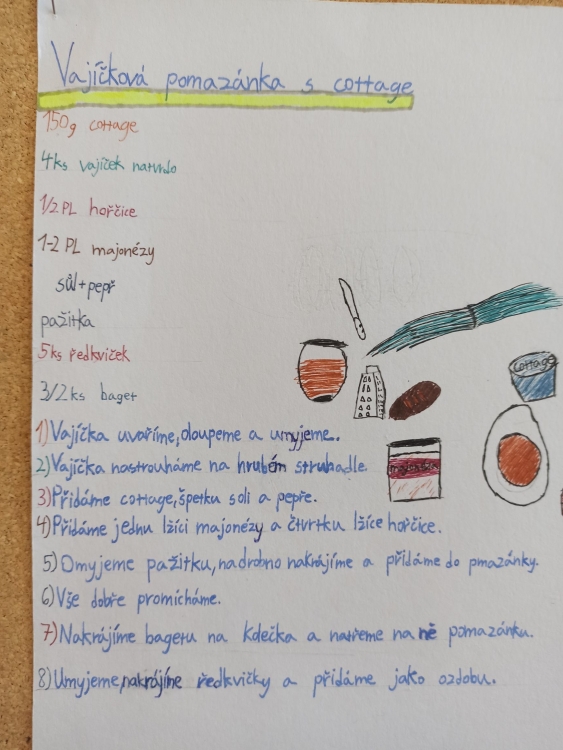 Vajíčková pomazánka s cottage
150g cottage
4ks vajíček natvrdo
1/2 PL hořčice
1-2 PL majonézy
sůl+pepř
pažitka
5ks ředkviček
3/2 ks baget
1)Vajíčka uvaříme,oloupeme a umyjeme.
2)Vajíčka nastrouháme na hrubém struhadle.
3)Přidáme cottage,špetku soli a pepře.
4)Přidáme jednu lžíci majonézy a čtvrtku lžíce hořčice.
5)Omyjeme pažitku,nadrobno nakrájíme a přidáme do pmazánky.
6)Vše dobře promícháme.
7)Nakrájíme bagetu na kdečka a natřeme na ně pomazánku.
8)Umyjeme,nakrájíme ředkvičky a přidáme jako ozdobu.
cottage